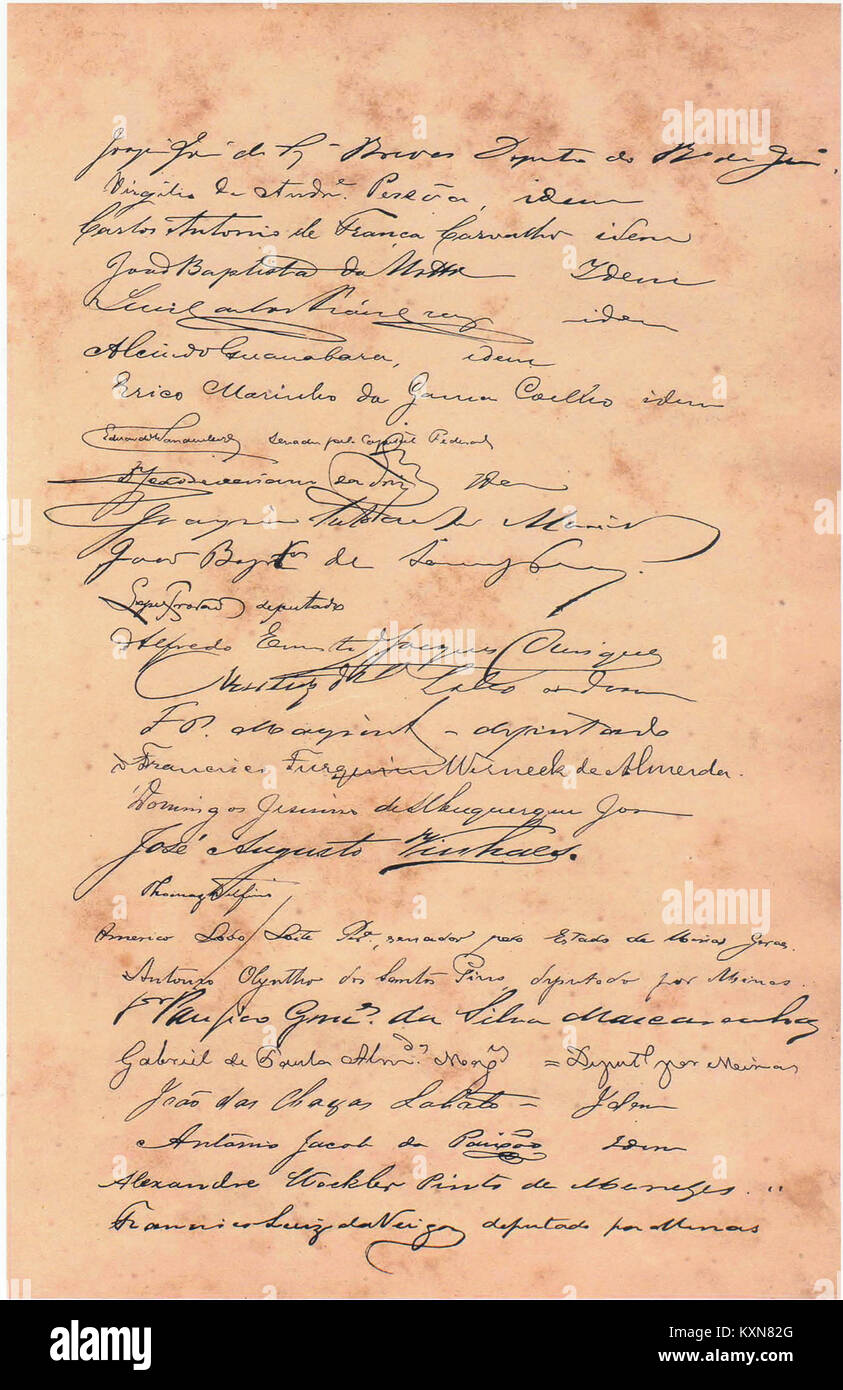 de Sz Breves Deputado do Rº de Janº
Virgilio de Andre. Pessôa, idem
Carlos Antonio de França Carvalho idem
João Baptista da Motta Idem
Luiz Carlos Fróes da Cruz idem
Alcindo Guanabara, idem
Erico Marinho da Gama Coelho idem
Eduardo Wandenkolk Senador pela Capital Federal
idem
Joaquim Saldanha Marinho
João Baptista de Sampaio
Lopes Trovão deputado
Alfredo Ernesto Jacques Ourique
idem
F. P. Mayrink - deputado
Francisco Furquim Werneck de Almeida.
Domingos Jesuino de Albuquerque Jor
José Augusto Vinhaes.
Thomaz Delfino
Americo Lobo Leite Pra, senador pelo Estado de Minas Geraes
Antonio Olyntho dos Santos Pires, deputado por Minas.
Pacifico Gonçs. da Silva Mascarenhas
Gabriel de Paula Almda. Mages = Deputº por Minas
João das Chagas Lobato - Idem
Antônio Jacob da Paixão Idem
Alexandre Stockler Pinto de Menezes. "
Francisco Luiz da Veiga deputado por Minas
alamy
www.alamy.com
KXN82G